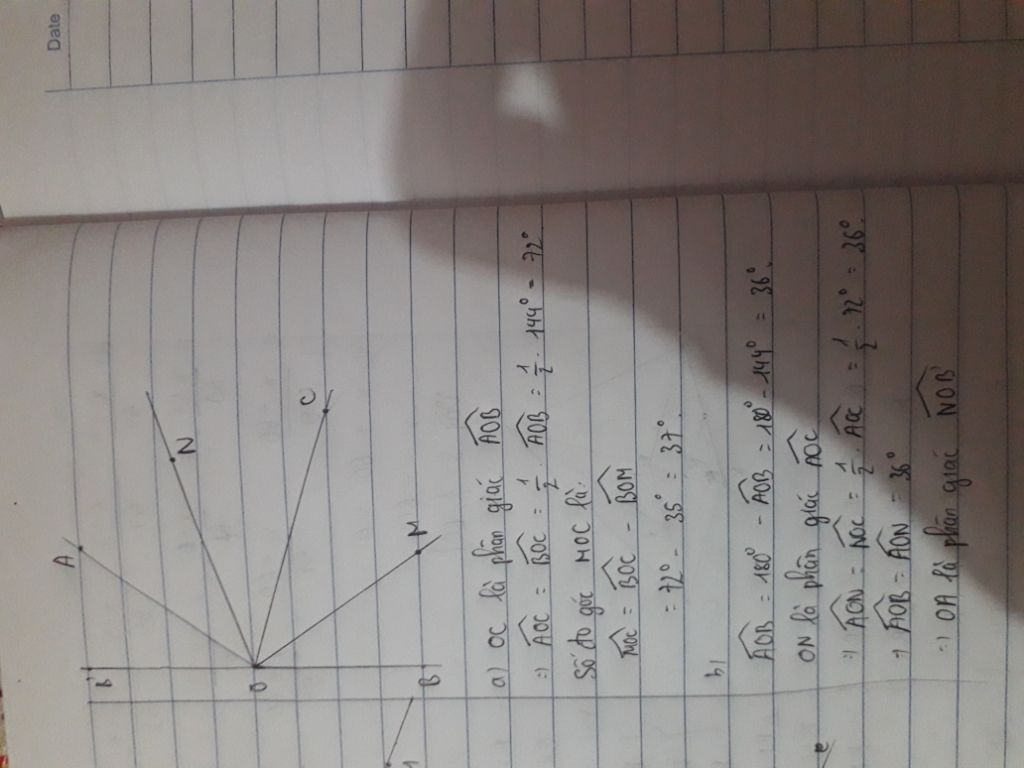 Date
A
N
B'
O
C
M
B
a) OC là phân giác AOB
=) AOC = BOC = 1/2 . AOB = 1/2 . 144° = 72°
Số đo góc MOC là:
MOC = BOC - BOM
= 72° - 35° = 37°
b,
AOB = 180° - AOB = 180° - 144° = 36°.
ON là phân giác AOC
=) AON = NOC = 1/2 . AOC = 1/2 . 72° = 36°
=) AOB = AON = 36°
=) OA là phân giác NOB'